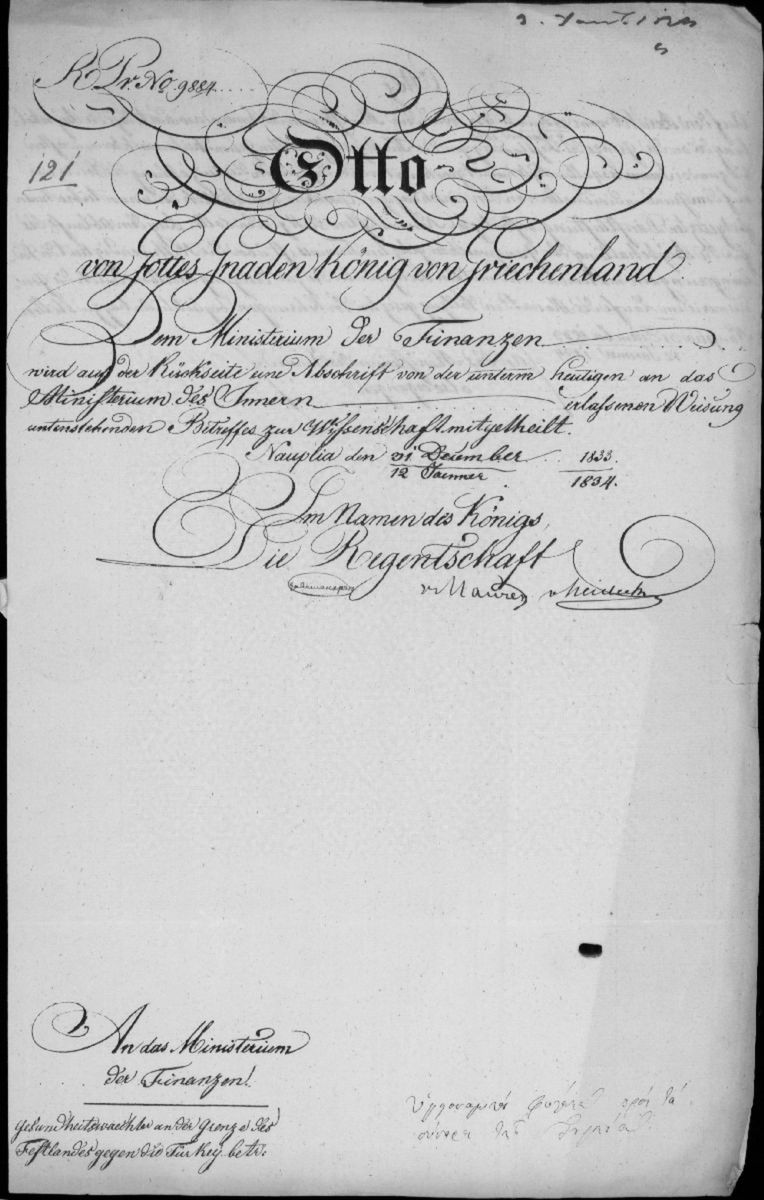 R Pr. No 9884.
121
Otto
von Gottes Gnaden König von Griechenland
Dem Ministerium der Finanzen
wird auf der Rückseite eine Abschrift von der unterm heutigen an das
Ministerium des Innern erlassenen Weisung
untenstehenden Betreffes zur Wissenschaft mitgetheilt.
Nauplia den 31 December 1833.
12 Jaenner 1834.
Im Namen des Königs,
Die Regentschaft
v. Maurer v Heideck
An das Ministerium
der Finanzen!
Gesundheitswaechter an der Grenze des
Festlandes gegen die Turkey betr.